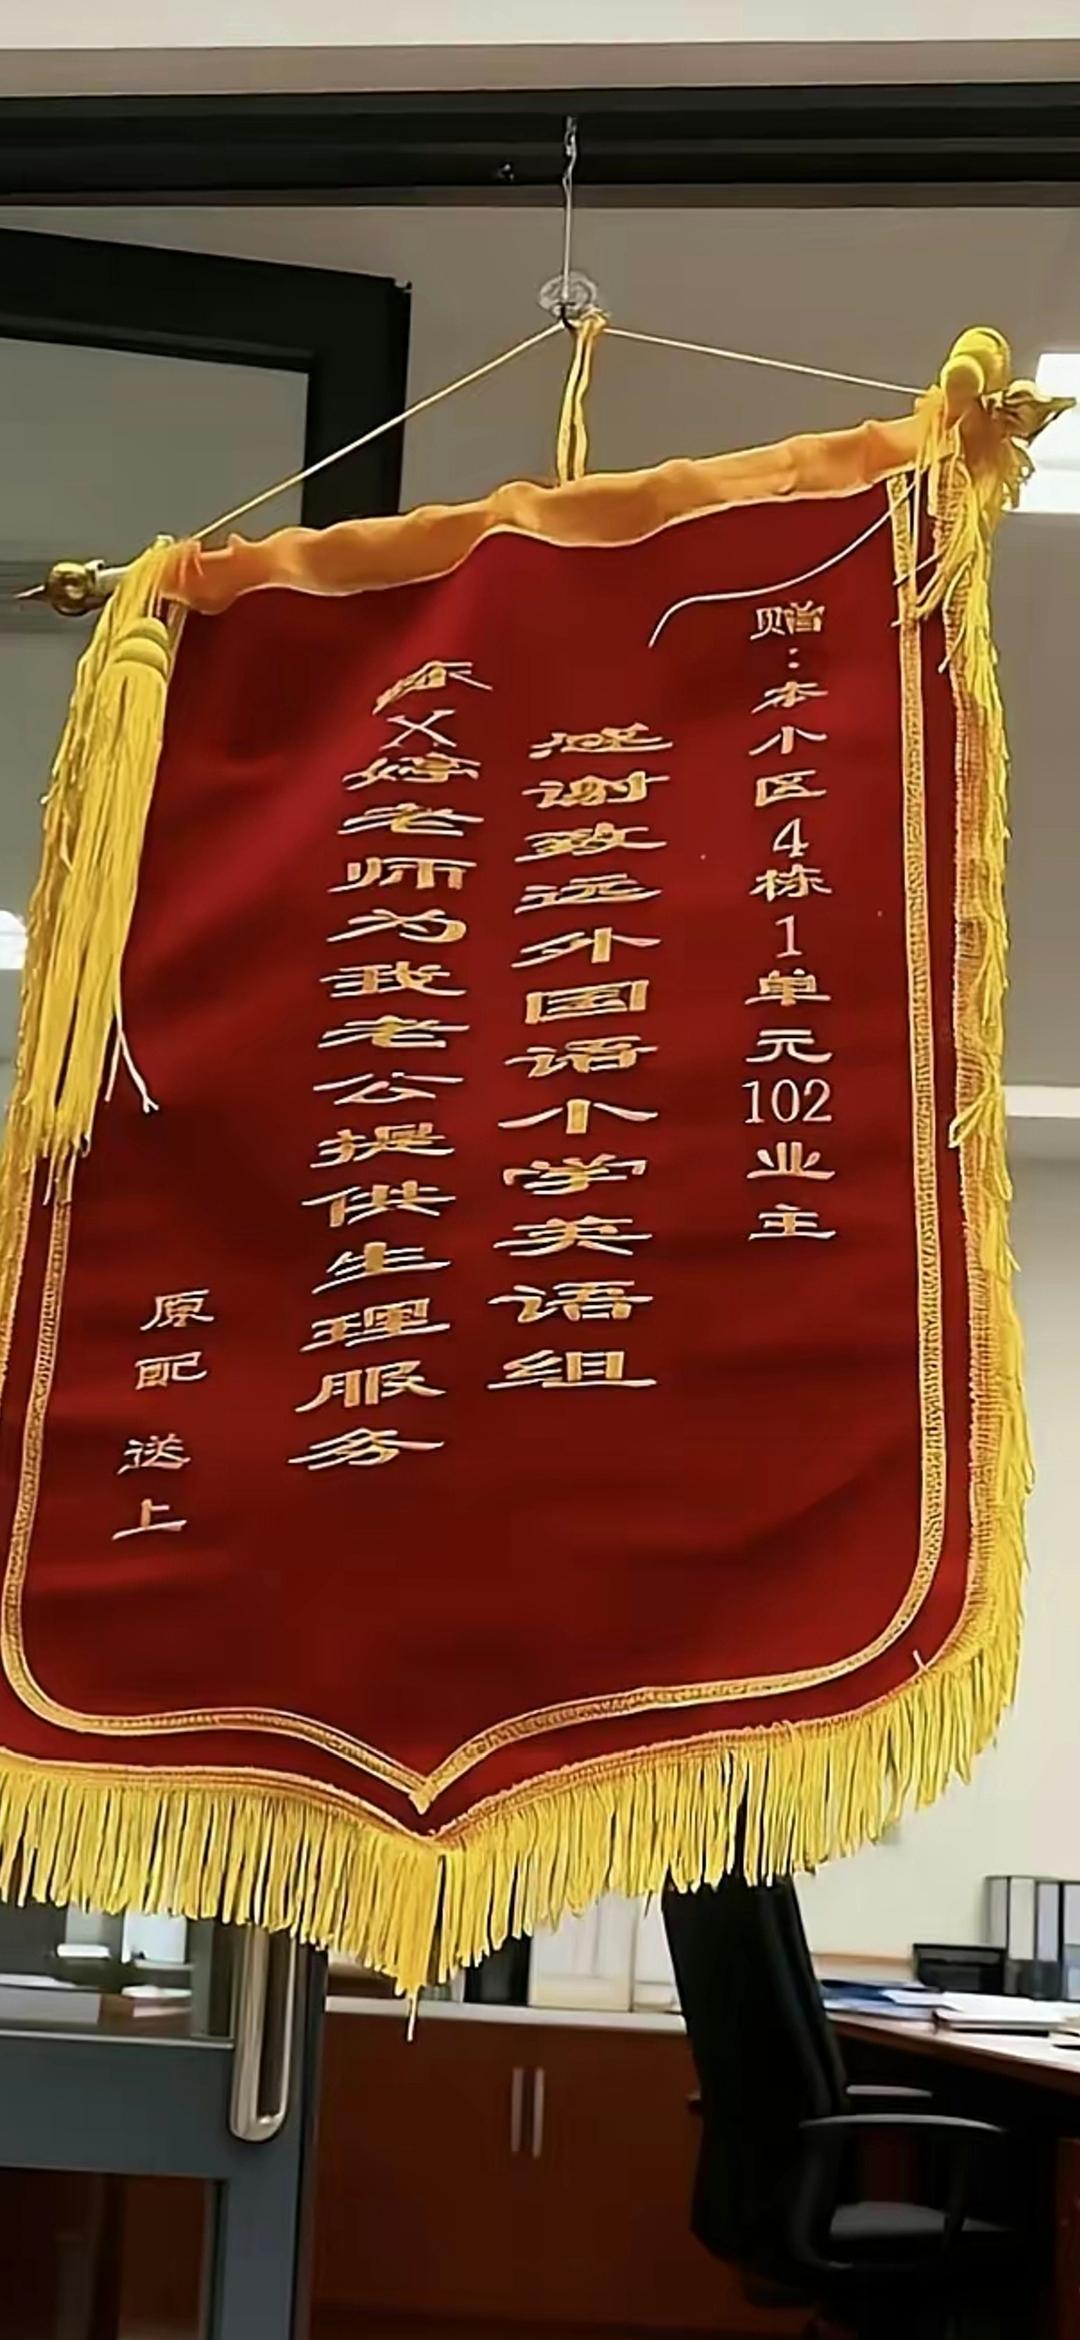 赠：本小区4栋1单元102业主
感谢致远外国语小学英语组
X婷老师为我老公提供生理服务
原配 送上